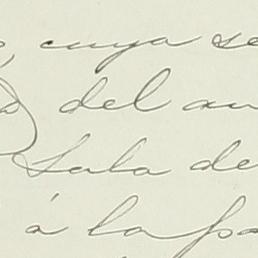 , cuya se
del au
Sala de
á la pa